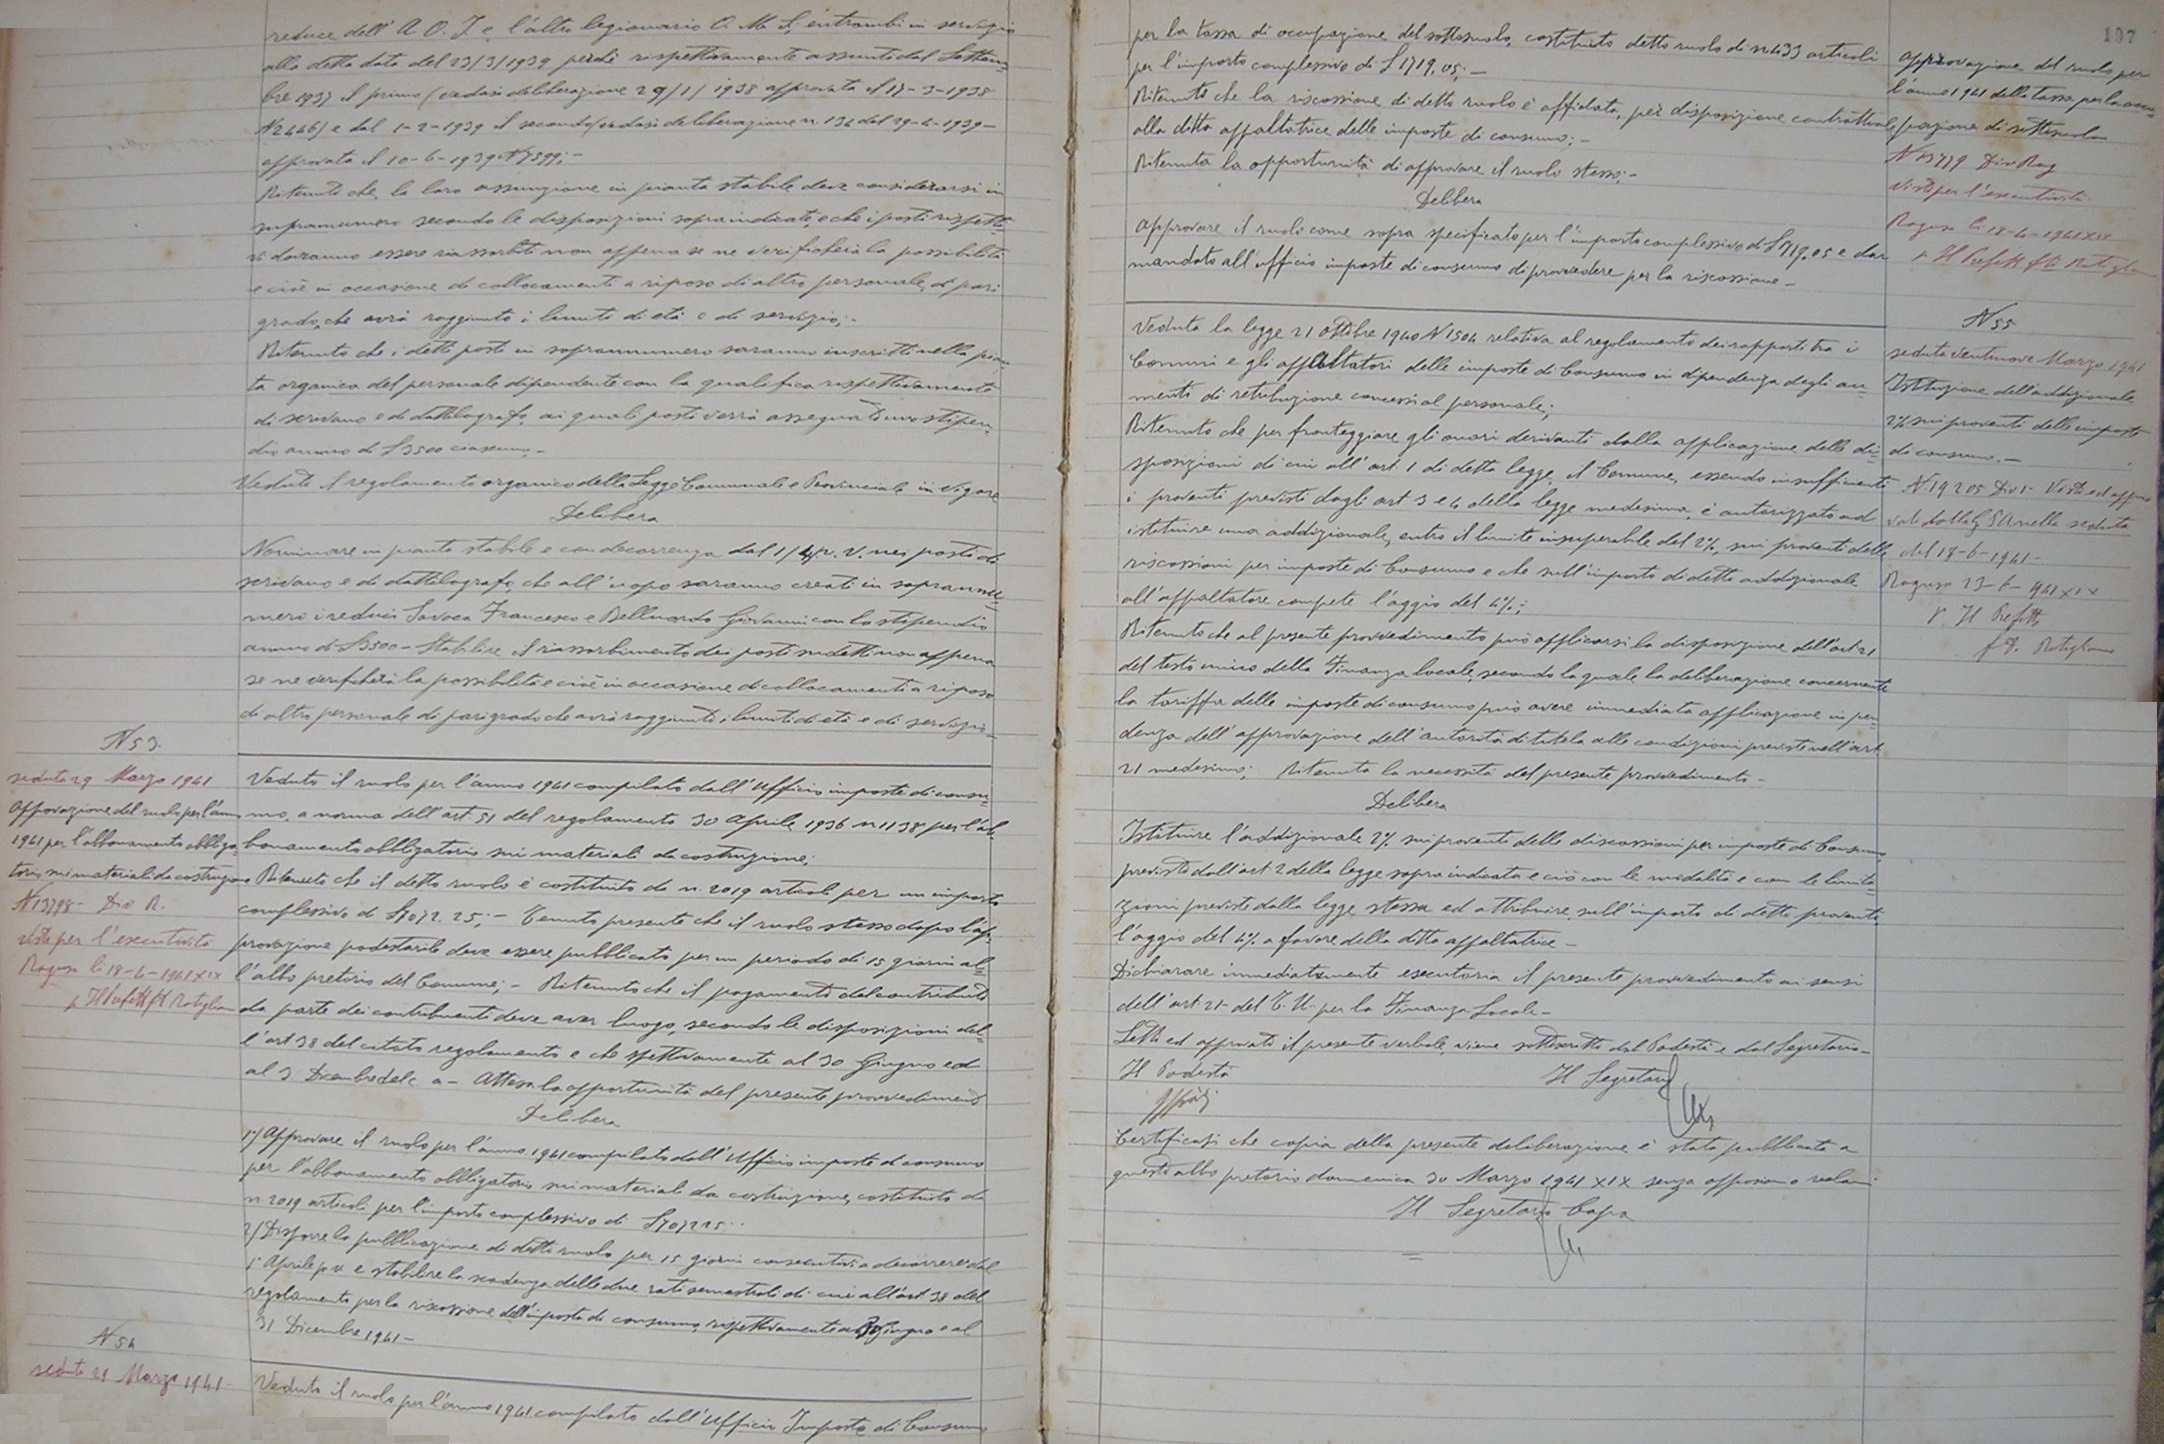 reduce dell'A. O. I e l'altro legionario O. M. S, entrambi in servizio
alla detta data del 23/3/1939 perchè rispettivamente assunti dal Settem-
bre 1937 il primo (vedasi deliberazione 29/1/1938 approvata il 17-3-1938
N 2446) e dal 1-2-1939 il secondo (vedasi deliberazione n. 134 del 29-4-1939-
approvata il 10-6-1939 N 7599;-
Ritenuto che, la loro assunzione in pianta stabile deve considerarsi in
supranumero secondo le disposizioni sopra indicate, e che i posti rispetti-
vi dovranno essere riassorbiti non appena se ne verificherà la possibilità
e cioè in occasione di collocamenti a riposo di altro personale, di pari
grado, che avrà raggiunto i limiti di età e di servizio;-
Ritenuto che i detti posti in soprannumero saranno inscritti nella pian-
ta organica del personale dipendente con la qualifica rispettivamente
di scrivano e di dattilografo, ai quali posti verrà assegnato uno stipen-
dio annuo di £ 3500 ciascuno.-
Veduto il regolamento organico della Legge Comunale e Provinciale in vigore
Delibera
Nominare in pianta stabile e con decorrenza dal 1/4/p. v. nei posti di
scrivano e di dattilografo, che all'uopo saranno creati in soprannu-
mero i reduci Savoca Francesco e Belluardo Giovanni con lo stipendio
annuo di £ 3500 - Stabilire il riassorbimento dei posti sudetti non appena
se ne verificherà la possibilità e cioè in occasione di collocamenti a riposo
di altro personale di pari grado che avrà raggiunto i limiti di età e di servizio-
N 53.
seduta 29 Marzo 1941
Approvazione del ruolo per l'anno
1941 per l'abbonamento obbliga-
torio sui materiali da costruzione
N 13798- Div R.
Visto per l'esecutività
Ragusa li 18-4-1941 XIX
p Il Prefetto f to Rotigliano
Veduto il ruolo per l'anno 1941 compilato dall'Ufficio imposte di consu-
mo, a norma dell'art 51 del regolamento 30 Aprile 1936 n 1138 per l'ab-
bonamento obbligatorio sui materiali da costruzione;
Ritenuto che il detto ruolo è costituito da n. 2019 articoli per un importo
complessivo di £ 7072. 25;- Tenuto presente che il ruolo stesso dopo l'ap-
provazione podestarile deve essere pubblicato per un periodo di 15 giorni al-
l'albo pretorio del Comune;- Ritenuto che il pagamento del contributo
da parte dei contribuenti deve aver luogo, secondo le disposizioni del-
l'art 38 del citato regolamento e che spettivamente al 30 Giugno ed
al 3 Dicembre del c. a - Attesa la opportunità del presente provvedimento
Delibera
1°) Approvare il ruolo per l'anno 1941 compilato dall'Ufficio imposte di consumo
per l'abbonamento obbligatorio sui materiali da costruzione, costituito di
n 2019 articoli per l'importo complessivo di £ 7072 25..
2) Disporre la pubblicazione di detto ruolo per 15 giorni consecutivi a decorrere dal
1° Aprile p v e stabilire la scadenza delle due rate semestrali di cui all'art 38 del
regolamento per la riscossione dell'imposta di consumo, rispettivamente al 30 Giugno e al
31 Dicembre 1941-
N 54
seduta 29 Marzo 1941-
Veduto il ruolo per l'anno 1941 compilato dall'Ufficio Imposte di Consumo
107
per la tassa di occupazione del sottosuolo, costituito detto ruolo di n. 433 articoli
per l'importo complessivo di £ 1719, 05;-
Ritenuto che la riscossione di detto ruolo è affidata, per disposizione contrattuale,
alla ditta appaltatrice delle imposte di consumo;-
Ritenuta la opportunità di approvare il ruolo stesso;-
Delibera
Approvare il ruolo come sopra specificato per l'importo complessivo di £ 1719, 05 e dar
mandato all'ufficio imposte di consumo di provvedere per la riscossione-
Approvazione del ruolo per
l'anno 1941 della tassa per la occu-
pazione di sottosuolo
N 13779 Div Rag
Visto per l'esecutività
Ragusa li 18-4-1941 XIX
p Il Prefetto f to Rotigliano
N 55
seduta ventinove Marzo 1941
Istituzione dell'addizionale
2% sui proventi delle imposte
di consumo.-
N. 19205 Div 1- Visto ed appro-
vato dalla G P A nella seduta
del 18-6-1941-
Ragusa 23-6-1941 XIX
p. Il Prefetto
f to. Rotigliano
Veduta la legge 21 Ottobre 1940 N 1504 relativa al regolamento dei rapporti tra i
Comuni e gli appaltatori delle imposte di Consumo in dipendenza degli au-
menti di retribuzione concessi al personale;
Ritenuto che per fronteggiare gli oneri derivanti dalla applicazione delle di-
sposizioni di cui all'art 1 di detta legge, il Comune, essendo insufficienti
i proventi previsti dagli art 3 e 4 della legge medesima, è autorizzato ad
istituire una addizionale, entro il limite insuperabile del 2%, sui proventi delle
riscossioni per imposte di Consumo e che sull'importo di detta addizionale
all'appaltatore compete l'aggio del 4%;
Ritenuto che al presente provvedimento può applicarsi la disposizione dell'art 21
del testo unico della Finanza locale, secondo la quale la deliberazione concernente
la tariffa delle imposte di consumo può avere immediata applicazione in pen-
denza dell'approvazione dell'autorità di tutela alle condizioni previste nell'art
21 medesimo; Ritenuta la necessità del presente provvedimento-
Delibera
Istituire l'addizionale 2% sui proventi delle riscossioni per imposte di Consumo
previsto dall'art 2 della legge sopra indicata e ciò con le modalità e con le limita-
zioni previste dalla legge stessa ed attribuire, sull'importo di detti proventi,
l'aggio del 4% a favore della ditta appaltatrice-
Dichiarare immediatamente esecutorio il presente provvedimento ai sensi
dell'art. 21- del T. U- per la Finanza Locale-
Letto ed approvato il presente verbale, viene sottoscritto dal Podestà e dal Segretario-
Il Podestà
Il Segretario
Certificasi che copia della presente deliberazione è stata pubblicata a
questo albo pretorio domenica 30 Marzo 1941 XIX senza opposizioni o reclami
Il Segretario Capo